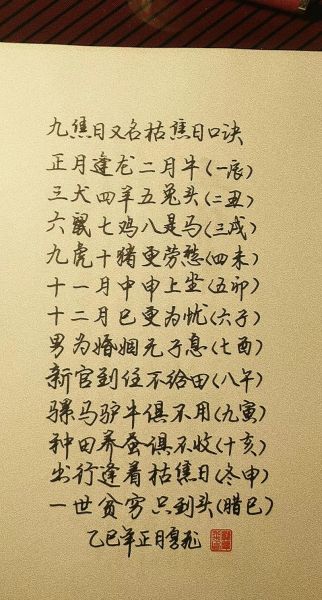 九焦日又名枯焦日口诀
正月逢龙二月牛(一辰)
三犬四羊五兔头(二丑)
六鼠七鸡八是马(三戌)
九虎十猪更劳愁(四未)
十一月中申上坐(五卯)
十二月巳更为忧(六子)
男为婚姻无子息(七酉)
新官到任不给田(八午)
骡马驴牛俱不用(九寅)
种田养蚕俱不收(十亥)
出行逢着枯焦日(冬申)
一世贫穷只到头(腊巳)
乙巳年正月